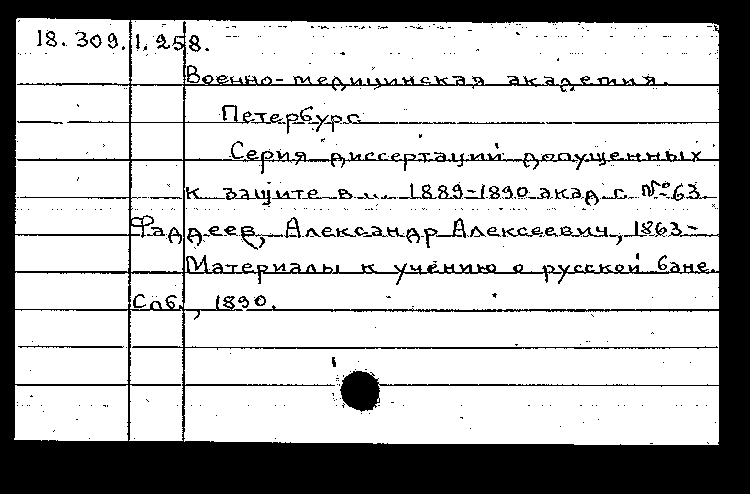 18. 309. 1. 258.
Военно-медицинская академия.
Петербург
Серия диссертаций допущенных
к защите в ... 1889-1890 акад. г. №63.
Фаддеев, Александр Алексеевич, 1863-
Материалы к учению о русской бане.
Спб., 1890.